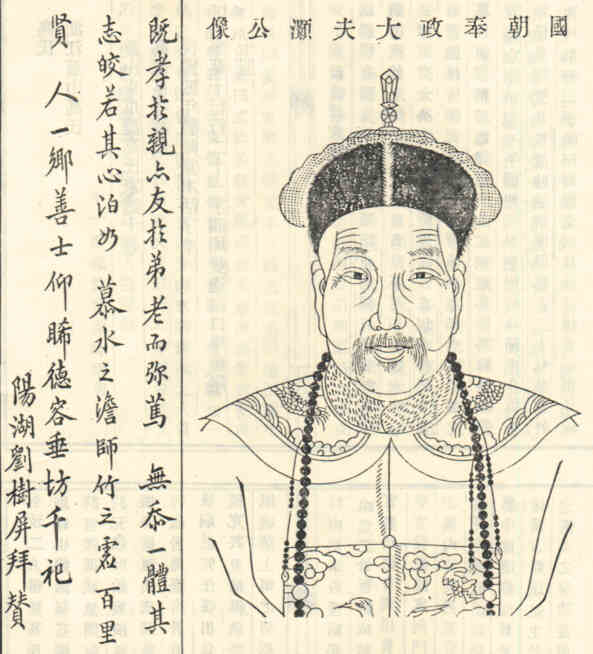 國朝奉政大夫灝公像
既孝扵親亦友扵弟老而弥篤 無忝一體其
志皎若其心泊如 慕水之澹師竹之虛 百里
賢人一鄉善士仰睎德容垂坊千祀
陽湖劉樹屏拜贊